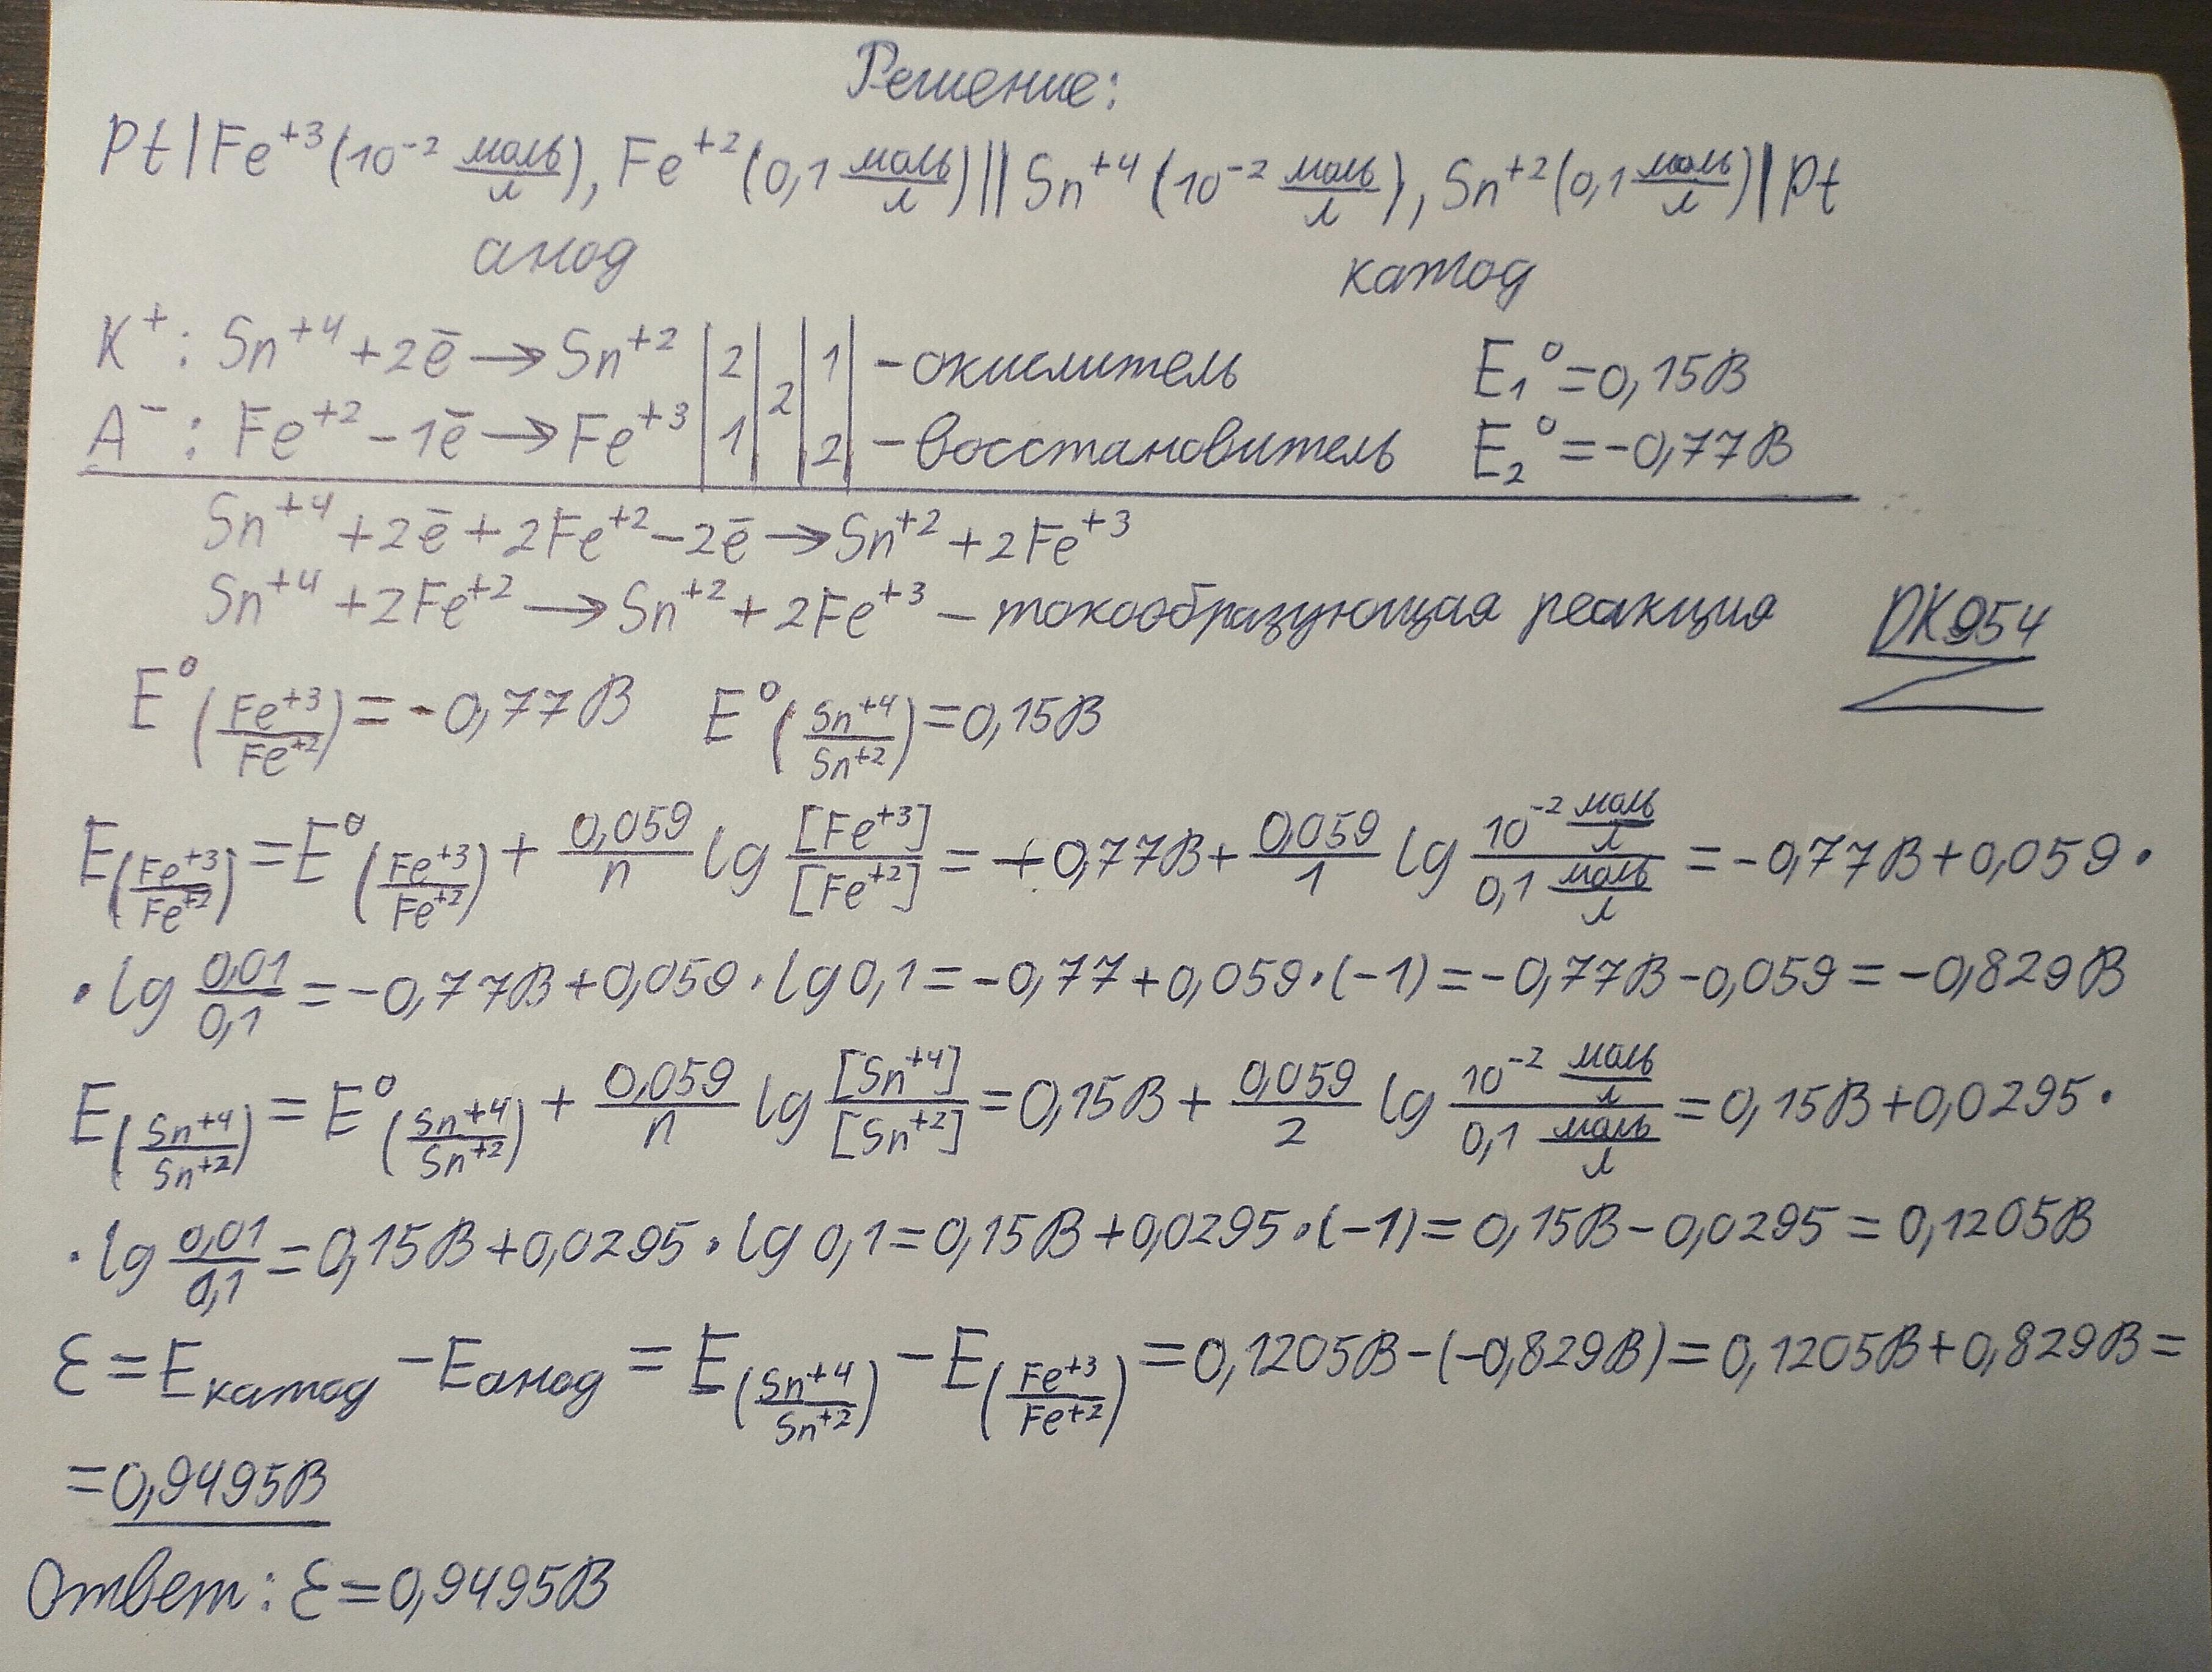 Решение:
Pt | Fe⁺³ (10⁻² моль/л), Fe⁺² (0,1 моль/л) || Sn⁺⁴ (10⁻² моль/л), Sn⁺² (0,1 моль/л) | Pt
анод катод
K⁺: Sn⁺⁴ + 2ē → Sn⁺² | 2 | 2 | 1 | – окислитель E₁⁰ = 0,15В
A⁻: Fe⁺² – 1ē → Fe⁺³ | 1 | | 2 | – восстановитель E₂⁰ = -0,77В
Sn⁺⁴ + 2ē + 2Fe⁺² – 2ē → Sn⁺² + 2Fe⁺³
Sn⁺⁴ + 2Fe⁺² → Sn⁺² + 2Fe⁺³ – токообразующая реакция
DK954
E⁰(Fe⁺³/Fe⁺²) = -0,77В E⁰(Sn⁺⁴/Sn⁺²) = 0,15В
E(Fe⁺³/Fe⁺²) = E⁰(Fe⁺³/Fe⁺²) + 0,059/n lg [Fe⁺³]/[Fe⁺²] = +0,77В + 0,059/1 lg 10⁻² моль/л / 0,1 моль/л = -0,77В + 0,059 ·
· lg 0,01/0,1 = -0,77В + 0,059 · lg 0,1 = -0,77 + 0,059 · (-1) = -0,77В - 0,059 = -0,829В
E(Sn⁺⁴/Sn⁺²) = E⁰(Sn⁺⁴/Sn⁺²) + 0,059/n lg [Sn⁺⁴]/[Sn⁺²] = 0,15В + 0,059/2 lg 10⁻² моль/л / 0,1 моль/л = 0,15В + 0,0295 ·
· lg 0,01/0,1 = 0,15В + 0,0295 · lg 0,1 = 0,15В + 0,0295 · (-1) = 0,15В - 0,0295 = 0,1205В
Ɛ = Eкатод – Eанод = E(Sn⁺⁴/Sn⁺²) – E(Fe⁺³/Fe⁺²) = 0,1205В - (-0,829В) = 0,1205В + 0,829В =
= 0,9495В
Ответ: Ɛ = 0,9495В